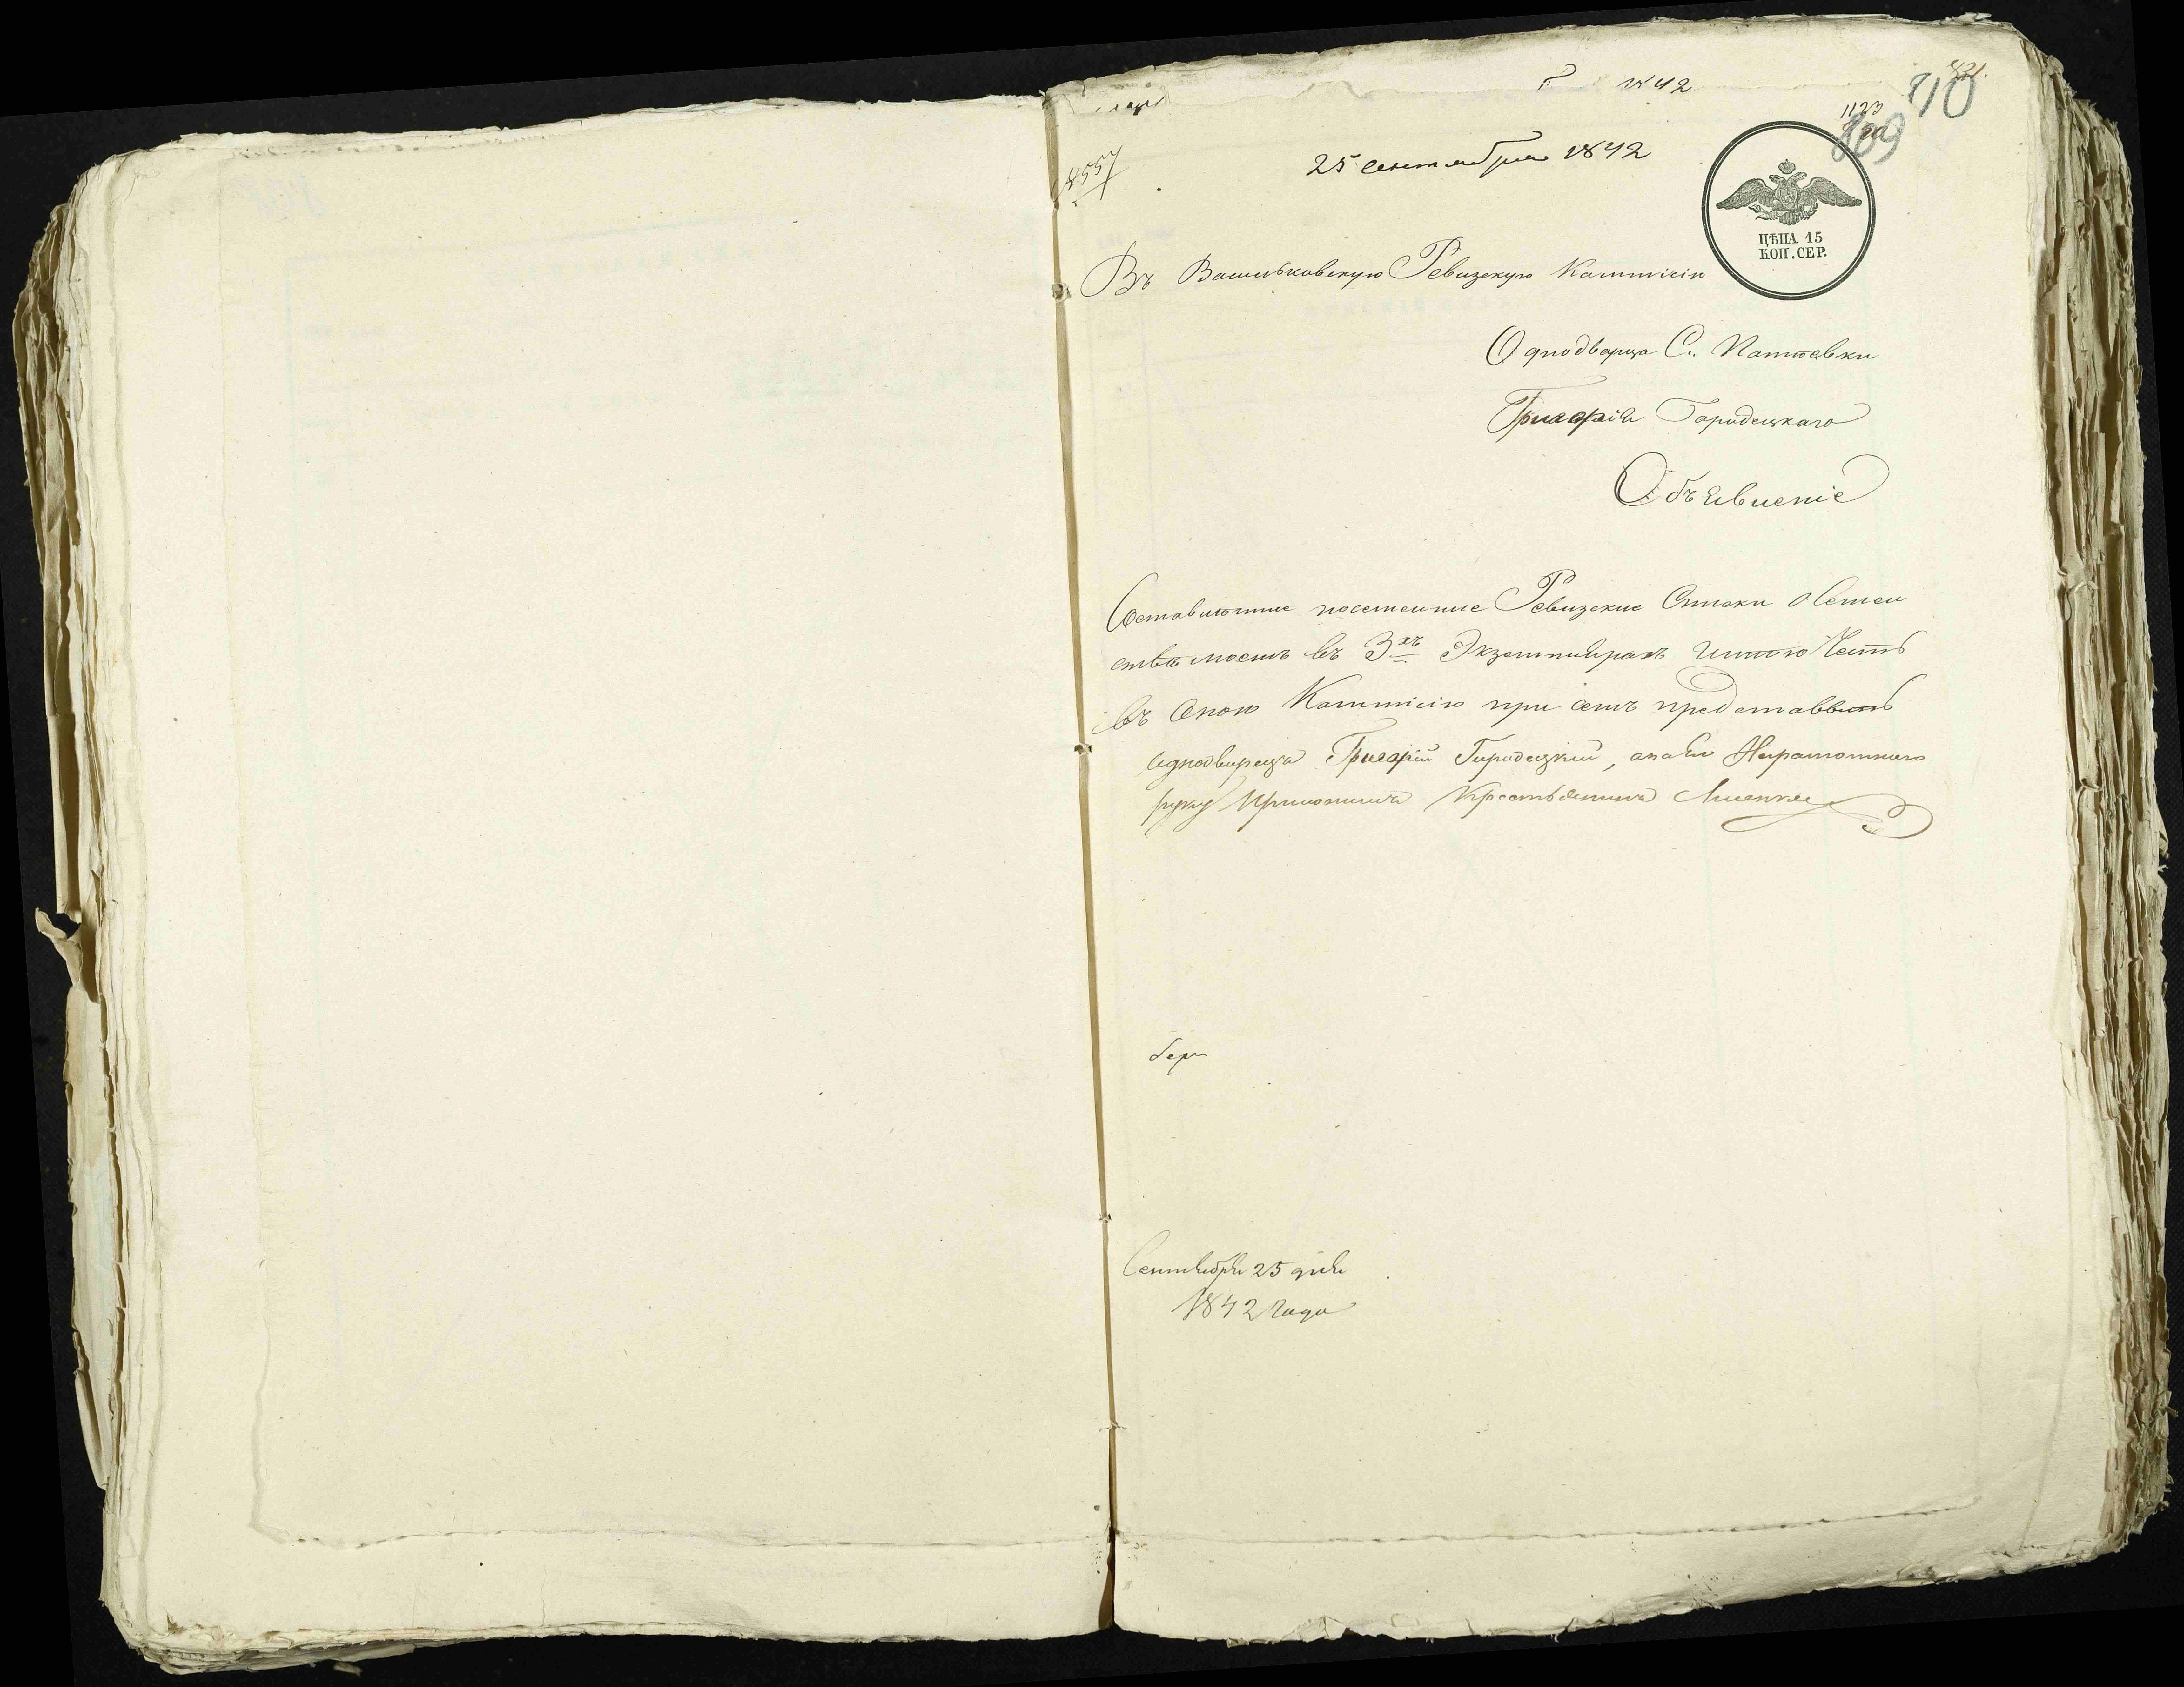 1842
421.
810
1123
809
4557
25 сентября 1842
ЦѢНА 15
КОП. СЕР.
Въ Васильковскую Ревизскую Коммисію
Однодворца С.
Григорія Городецкаго
Объявленіе
Составленные посемейные Ревизские Списки о Семей
ствѣ моемъ въ 3хъ Экземплярахъ имѣю Честь
въ оною Коммисію при семъ представить
однодворецъ Григорій Городецкий, Неграмотного
Крестьянинъ
Сентября 25 дня
1842 Года